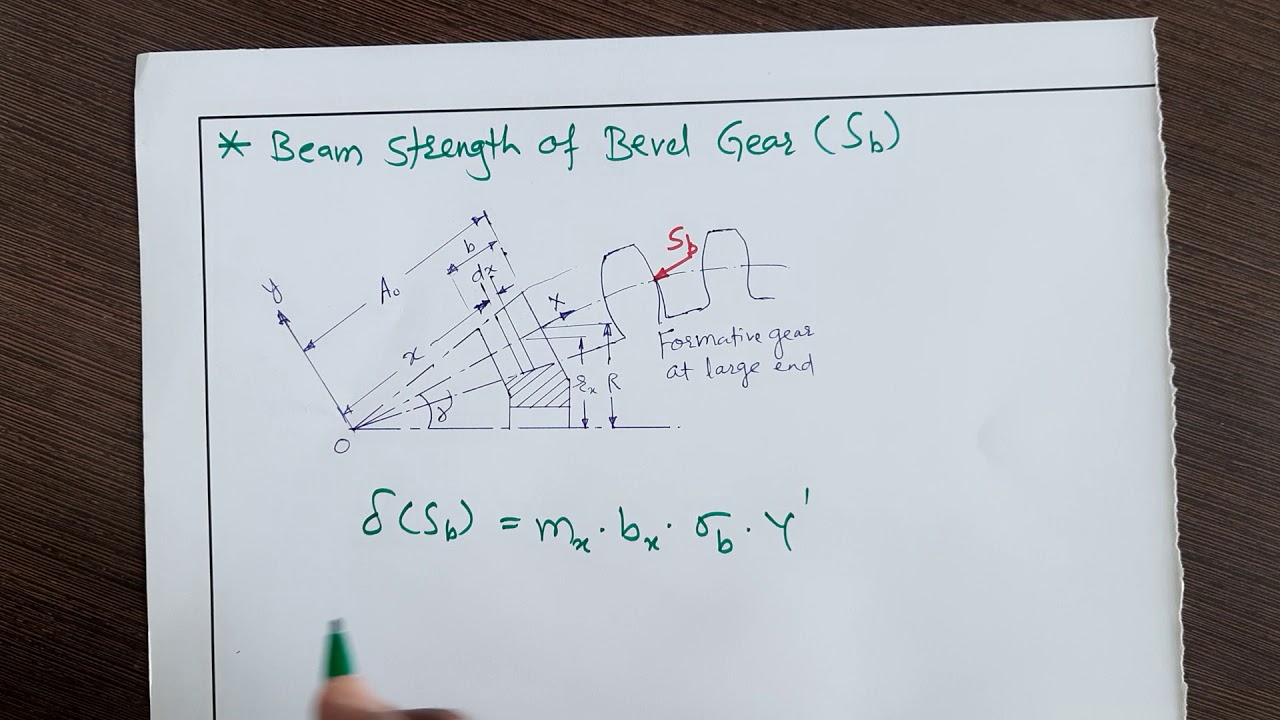 * Beam Strength of Bevel Gear (Sb)
y
A₀
b
dx
x
X
Sb
Formative gear
at large end
rₓ R
γ
O
δ(Sb) = mₓ · bₓ · σb · Y'